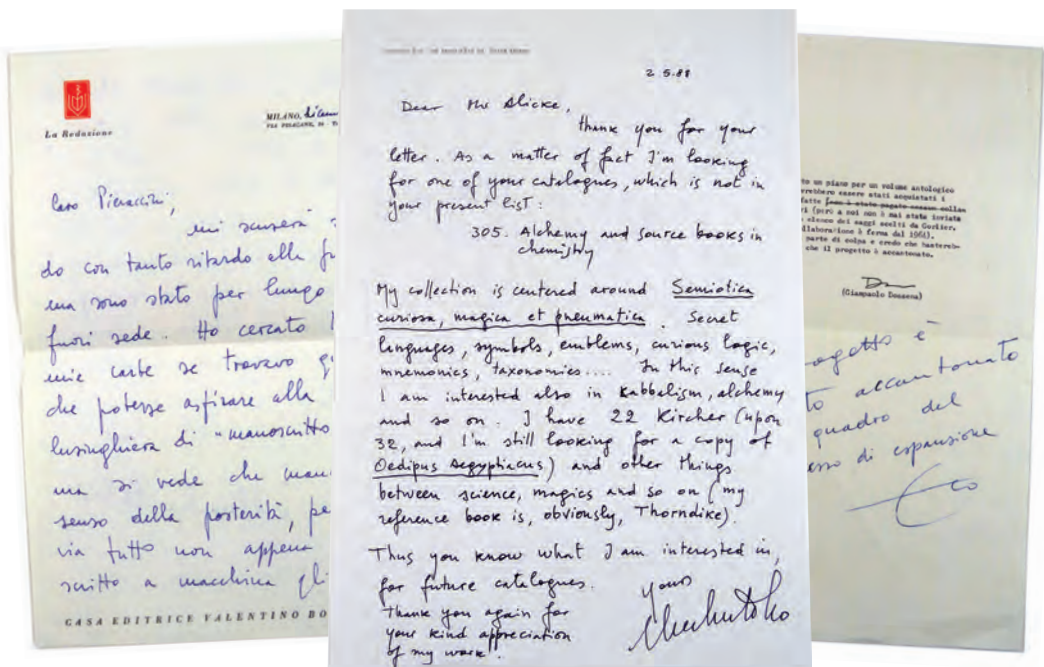 La Redazione
MILANO,
Caro Pieraccini,
mi scuserà
do con tanto ritardo alla
ma sono stato per lungo
fuori sede. Ho cercato
mie carte se trovavo
che potesse aspirare alla
lusinghiera di "manoscritto
ma si vede che
senso della posterità,
via tutto non appena
scritto a macchina
CASA EDITRICE VALENTINO BO
2.5.88
Dear Mr Alicke,
thank you for your
letter. As a matter of fact I'm looking
for one of your catalogues, which is not in
your present list:
305. Alchemy and source books in
chemistry
My collection is centered around Semiotica
curiosa, magica et pneumatica. Secret
linguages, symbols, emblems, curious logic,
mnemonics, taxonomies.... In this sense
I am interested also in Kabbalism, alchemy
and so on. I have 22 Kircher (upon
32, and I'm still looking for a copy of
Oedipus Aegyptiacus) and other things
between science, magics and so on (my
reference book is, obviously, Thorndike).
Thus you know what I am interested in,
for future catalogues.
Thank you again for
your kind appreciation
of my work.
yours
to un piano per un volume antologico
rebbero essere stati acquistati i
fatto
i (però a noi non è mai stato inviato
elenco dei saggi scelti da Gorlier,
llaborazione è ferma dal 1961).
parte di colpa e credo che basterebb-
che il progetto è accantonato.
(Giampaolo Dossena)
rogetto è
to accantonato
quadro del
esso di espansione
Eco